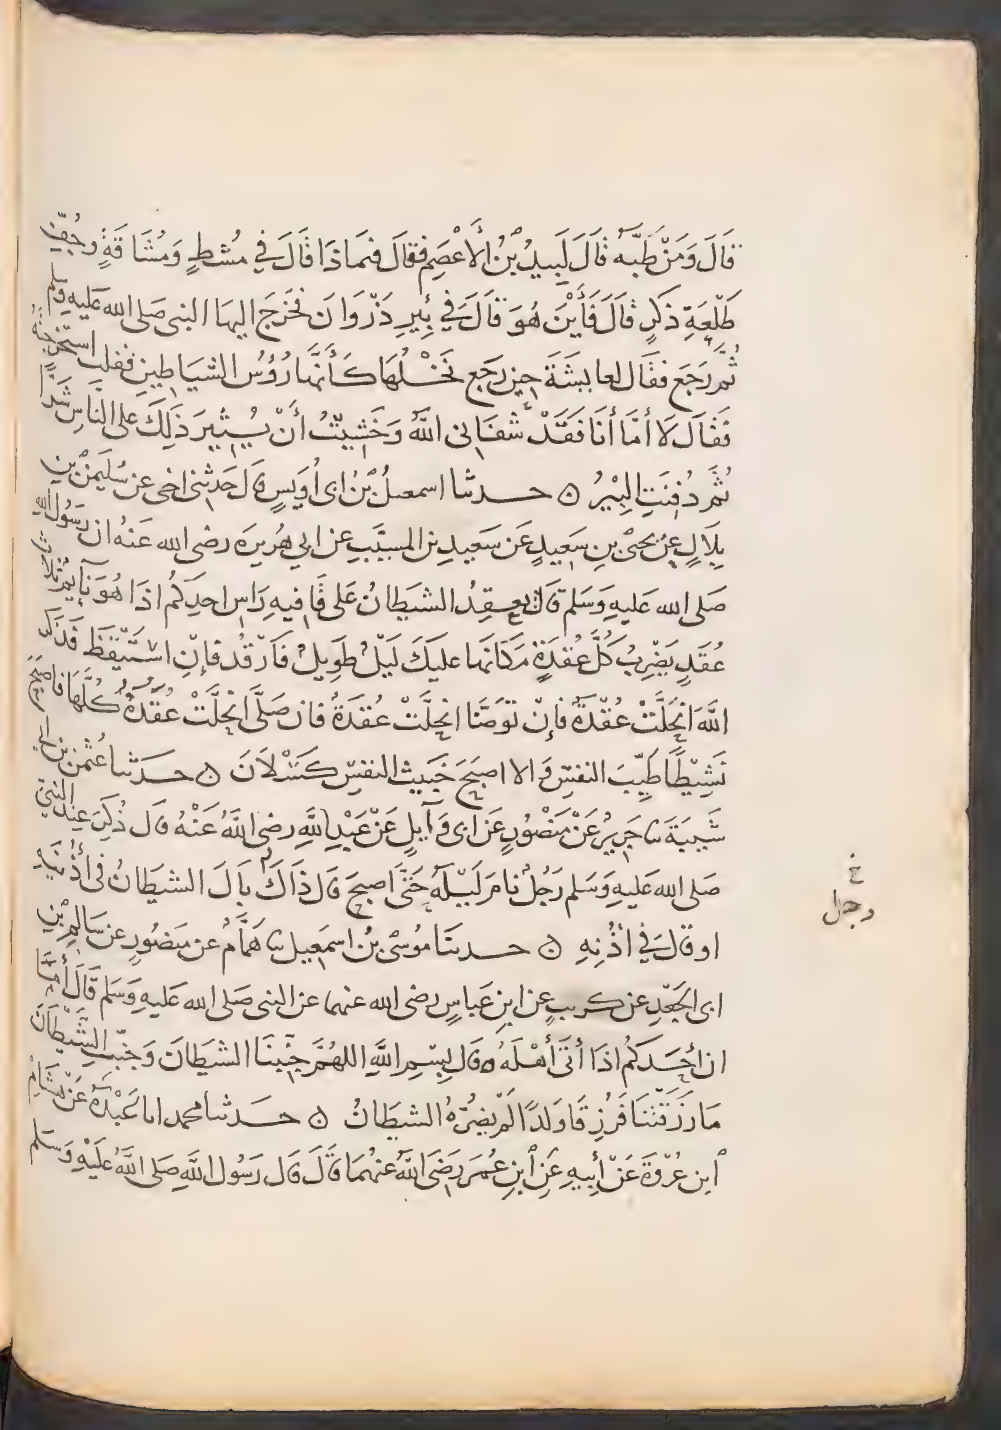 قَالَ وَمَنْ طَبَّهُ قَالَ لَبِيدُ بْنُ الْأَعْصَمِ فقَالَ فَمَاذَا قَالَ فِي مُشطٍ وَمُشَاقَةٍ وجُفِّ
طَلْعَةِ ذَكَرٍ قَالَ فَأَيْنَ هُوَ قَالَ فِي بِئِيرِ ذَرْوَانَ فخَرَجَ اليهَا النبى صَلى الله عَليهِ وَسَلم
ثُمَّ رَجَعَ فقَال لعايشَةَ حِينَ رَجَع نَخْلُهَا كَأَنَّهَا رُؤُسُ الشيَاطِينِ فقلت استَخرجتَهُ
فَقَالَ لَا أمَّا أنَا فَقَدْ شَفَانِى اللَّهُ وَخَشِيتُ أَنْ يُثِيرَ ذَلِكَ على النَّاسِ شَرًّا
ثُمَّ دُفِنَتِ البِيْرُ ۞ حدثنا اسمعيلُ بْنُ ابى أُوَيسٍ قَالَ حَدثنى اخى عن سُلَيمٰنَ بن
بِلَالٍ عن يحيَى بنِ سَعِيدٍ عَن سَعِيدِ بن المسيَّبِ عن ابي هُريرَه رضى الله عَنهُ ان رَسُولَ اللهِ
صَلى الله عَليهِ وَسَلم قَالَ يعقِدُ الشيطَانُ عَلى قَافيهِ رَاسِ احدِكُم اذَا هُوَ نَايمٌ ثلَاث
عُقَدٍ يَضْرِبُ كُلَّ عُقدَةٍ مَكَانَهَا عليكَ لَيْلٌ طَوِيلٌ فَارْقُدْ فإنِ اسْتَيْقَظَ فَذَكَرَ
اللَّهَ انحَلَّتْ عُقْدَةٌ فإنْ تَوَضَّأَ انحلَّتْ عُقدَةٌ فان صَلَّى انحلَّتْ عُقَدُهُ كُلُّهَا فاصْبَحَ
نَشِيْطًا طَيِّبَ النفسِ وَالا اصبَحَ خَبيثَ النفسِ كَسْلَانَ ۞ حدثنا عُثمٰن بن ابى
شَيبَةَ نا جَرِيرٌ عَنْ مَنْصُورٍ عَن ابى وَآيِلٍ عَنْ عَبْدِ اللَّهِ رضى اللَّهُ عَنْهُ قَالَ ذُكِرَ عِندَ النبيّ
صَلى الله عَليهِ وَسَلم رَجُلٌ نامَ لَيْلَهُ حَتَّى اصبحَ قَال ذَاكَ بَالَ الشيطَانُ فى أُذُنَيهِ
او قَالَ فِي اُذُنِهِ ۞ حدثنَا مُوسَى بْنُ اسمَعِيل نا هَمَّامٌ عن مَنصُورٍ عن سَالِمِ بْنِ
ابى الجَعْدِ عن كريبٍ عن ابنِ عَباسٍ رضى الله عنهما عن النبى صَلى الله عَليهِ وَسَلم قَالَ أَمَا
ان أحَدَكُم اذَا أَتَى أَهْلَهُ وَقَال بِسْمِ اللَّهِ اللهُمَّ جَنِّبْنَا الشيطَانَ وَجَنِّبِ الشَّيْطَانَ
مَا رَزَقْتَنَا فَرُزِقَا وَلَدًا لَمْ يَضُرَّهُ الشيطَانُ ۞ حَدثنا محمد انا عَبْدَةُ عَنْ هشَامِ
ابْنِ عُرْوَةَ عَنْ أَبِيهِ عَنِ ابْنِ عُمَرَ رَضِىَ اللَّهُ عَنهُمَا قَالَ قَال رَسُول اللَّهِ صَلى اللَّهُ عَلَيْهِ وَسَلم
خ